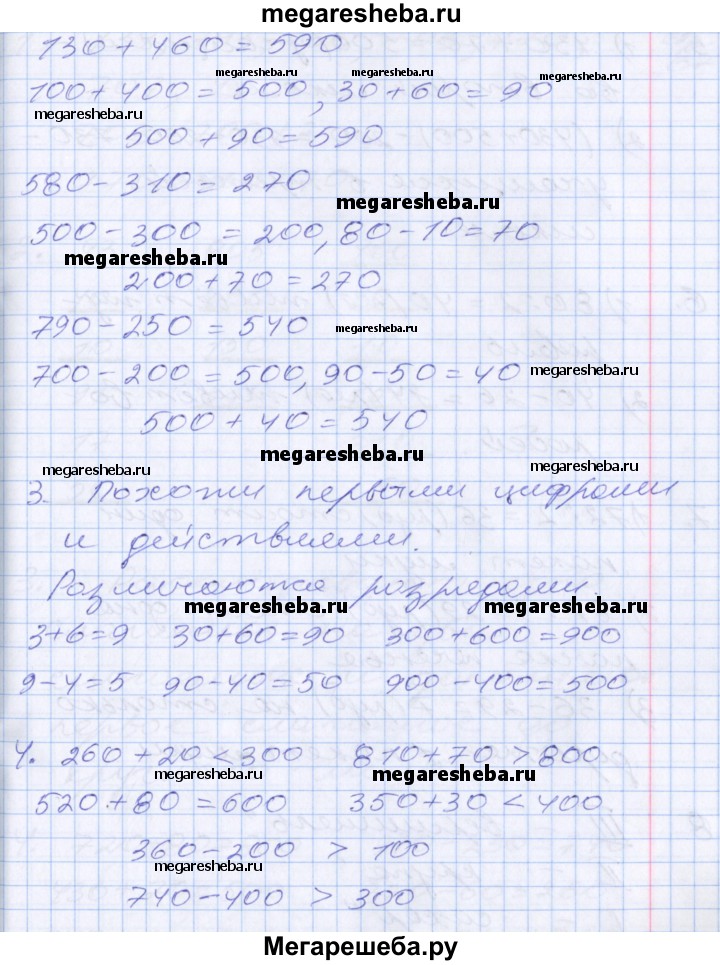 megaresheba.ru
130 + 460 = 590
megaresheba.ru megaresheba.ru megaresheba.ru
100 + 400 = 500, 30 + 60 = 90
megaresheba.ru
500 + 90 = 590
580 - 310 = 270
megaresheba.ru
500 - 300 = 200, 80 - 10 = 70
megaresheba.ru
200 + 70 = 270
790 - 250 = 540 megaresheba.ru
700 - 200 = 500, 90 - 50 = 40 megaresheba.ru
500 + 40 = 540
megaresheba.ru
megaresheba.ru megaresheba.ru
3. Похожи первыми цифрами
и действиями.
Различаются разрядами.
megaresheba.ru megaresheba.ru
3+6=9 30+60=90 300+600=900
9-4=5 90-40=50 900-400=500
4. 260 + 20 < 300 810 + 70 > 800
megaresheba.ru megaresheba.ru
520 + 80 = 600 350 + 30 < 400
360 - 200 > 100
megaresheba.ru
740 - 400 > 300
Мегарешеба.ру